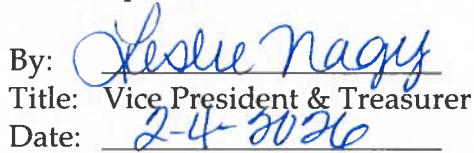 By: Leslie Nagy
Title: Vice President & Treasurer
Date: 2-4-2026